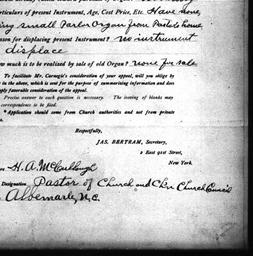 articulars of present Instrument, Age, Cost Price, Etc. Have none,
ing small Parlor Organ from Pastor's home.
eason for displacing present Instrument? no instrument
displace
ow much is to be realized by sale of old Organ? none for sale
To facilitate Mr. Carnegie's consideration of your appeal, will you oblige by
in the above, which is sent for the purpose of summarizing information and does
ply favorable consideration of the appeal.
Precise answer to each question is necessary. The leaving of blanks may
correspondence to be filed.
*Application should come from Church authorities and not from private
Respectfully,
JAS. BERTRAM, Secretary,
2 East 91st Street,
New York.
H. A. McCullough
Designation Pastor of Church and Chr. Church Council
Albemarle, N.C.